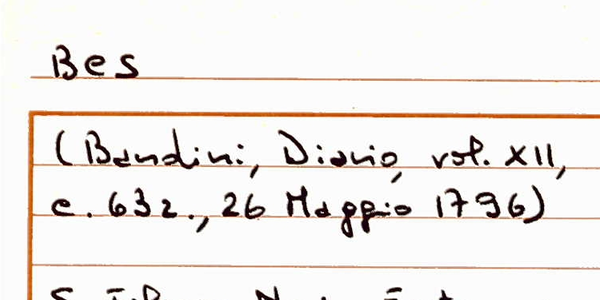 Bes
(Bandini, Diario, vol. XII,
c. 632., 26 Maggio 1796)